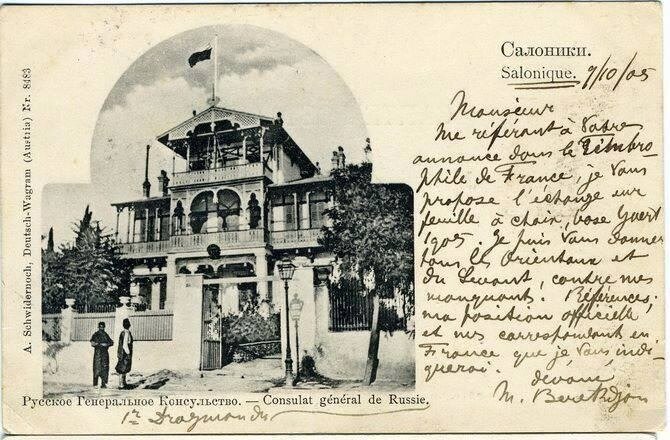 A. Schwidernoch, Deutsch-Wagram (Austria) Nr. 8483
Салоники.
Salonique. 9/10/05
Monsieur
Me référant à Votre
annonce dans le Timbro-
phile de France, je vous
propose l'échange sur
feuille à choix, base Yvert
1905. Je puis Vous donner
tous les Orientaux et
du Levant, contre mes
manquants. Références:
ma position officielle
et mes correspondants en
France que je Vous indi
querai.
dévoué
M.
Русское Генеральное Консульство. — Consulat général de Russie.
1r Drogman du